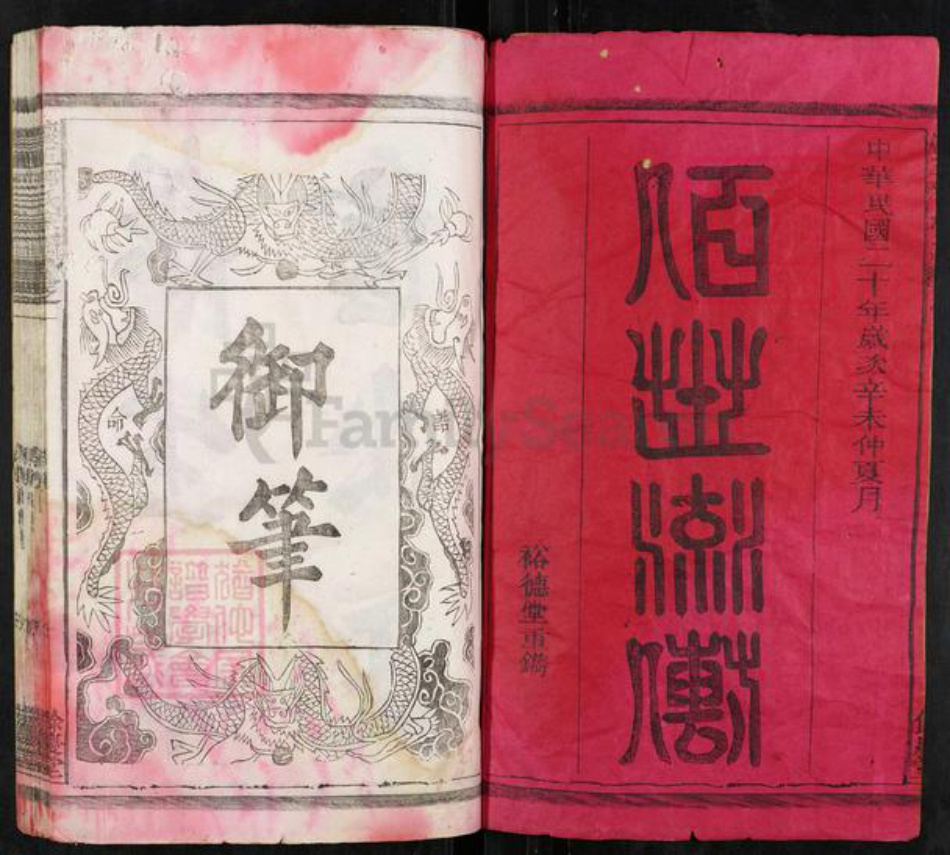 中華民國二十年歲次辛未仲夏月
佰世流傳
裕德堂重鐫
御筆
誥
命
FamilySea